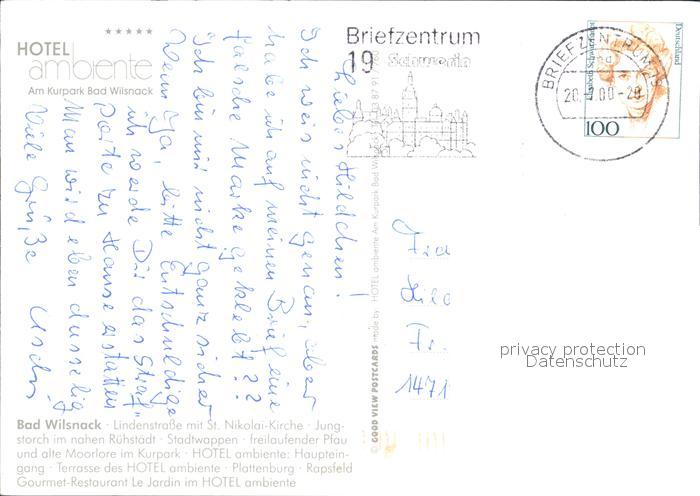 ★★★★★
HOTEL
ambiente
Am Kurpark Bad Wilsnack
Liebes Hildchen!
Ich weis nicht genau, aber
habe ich auf meinen Brief eine
falsche Marke geklebt??
Ich bin mir nicht ganz sicher
Wenn Ja, bitte Entschuldige
ich werde Dir das Straf"
Porto zu Hause erstatten
Man wird eben dusselig
Viele Grüße Uschi
Bad Wilsnack · Lindenstraße mit St. Nikolai-Kirche · Jung-
storch im nahen Rühstädt · Stadtwappen · freilaufender Pfau
und alte Moorlore im Kurpark · HOTEL ambiente: Hauptein-
gang · Terrasse des HOTEL ambiente · Plattenburg · Rapsfeld
Gourmet-Restaurant Le Jardin im HOTEL ambiente
© GOOD VIEW POSTCARDS made by HOTEL ambiente Am Kurpark Bad Wilsnack
Briefzentrum
19 Schwerin
BRIEFZENTRUM 19
00-20
Deutschland
Elisabeth Schwarzhaupt
100
Fr.
1471
privacy protection
Datenschutz